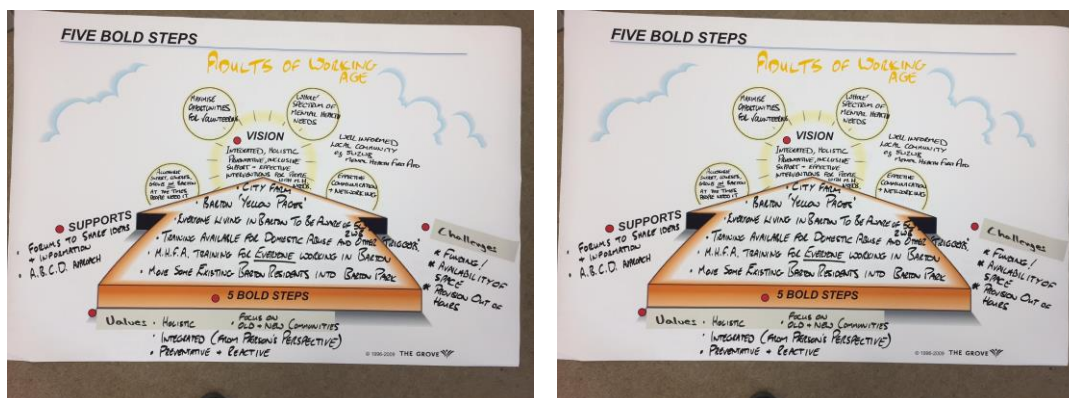 FIVE BOLD STEPS
ADULTS OF WORKING
AGE
MAXIMISE
OPPORTUNITIES
FOR VOLUNTEERING
WHOLE
SPECTRUM OF
MENTAL HEALTH
NEEDS
VISION
INTEGRATED, HOLISTIC
PREVENTATIVE, INCLUSIVE
SUPPORT + EFFECTIVE
INTERVENTIONS FOR PEOPLE
WITH M.H
NEEDS
WELL INFORMED
LOCAL COMMUNITY
MENTAL HEALTH FIRST AID
BARTON
AT THE TIMES
PEOPLE NEED IT
EFFECTIVE
COMMUNICATION
+ NETWORKING
SUPPORTS
FORUMS TO SHARE IDEAS
+ INFORMATION
• A.B.C.D. APPROACH
• CITY FARM
• BARTON 'YELLOW PAGES'
• EVERYONE LIVING IN BARTON TO BE AWARE OF
• TRAINING AVAILABLE FOR DOMESTIC ABUSE AND OTHER 'TRIGGERS'
• M.H.F.A. TRAINING FOR EVERYONE WORKING IN BARTON
• MOVE SOME EXISTING BARTON RESIDENTS INTO BARTON PARK
Challenges
* FUNDING!
* AVAILABILITY OF
SPACE
* PROVISION OUT OF
HOURS
5 BOLD STEPS
Values • HOLISTIC • FOCUS ON
OLD + NEW COMMUNITIES
• INTEGRATED (FROM PERSON'S PERSPECTIVE)
• PREVENTATIVE + REACTIVE
© 1996-2009 THE GROVE
FIVE BOLD STEPS
ADULTS OF WORKING
AGE
MAXIMISE
OPPORTUNITIES
FOR VOLUNTEERING
WHOLE
SPECTRUM OF
MENTAL HEALTH
NEEDS
VISION
INTEGRATED, HOLISTIC
PREVENTATIVE, INCLUSIVE
SUPPORT + EFFECTIVE
INTERVENTIONS FOR PEOPLE
WITH M.H
NEEDS
WELL INFORMED
LOCAL COMMUNITY
MENTAL HEALTH FIRST AID
BARTON
AT THE TIMES
PEOPLE NEED IT
EFFECTIVE
COMMUNICATION
+ NETWORKING
SUPPORTS
FORUMS TO SHARE IDEAS
+ INFORMATION
• A.B.C.D. APPROACH
• CITY FARM
• BARTON 'YELLOW PAGES'
• EVERYONE LIVING IN BARTON TO BE AWARE OF
• TRAINING AVAILABLE FOR DOMESTIC ABUSE AND OTHER 'TRIGGERS'
• M.H.F.A. TRAINING FOR EVERYONE WORKING IN BARTON
• MOVE SOME EXISTING BARTON RESIDENTS INTO BARTON PARK
Challenges
* FUNDING!
* AVAILABILITY OF
SPACE
* PROVISION OUT OF
HOURS
5 BOLD STEPS
Values • HOLISTIC • FOCUS ON
OLD + NEW COMMUNITIES
• INTEGRATED (FROM PERSON'S PERSPECTIVE)
• PREVENTATIVE + REACTIVE
© 1996-2009 THE GROVE